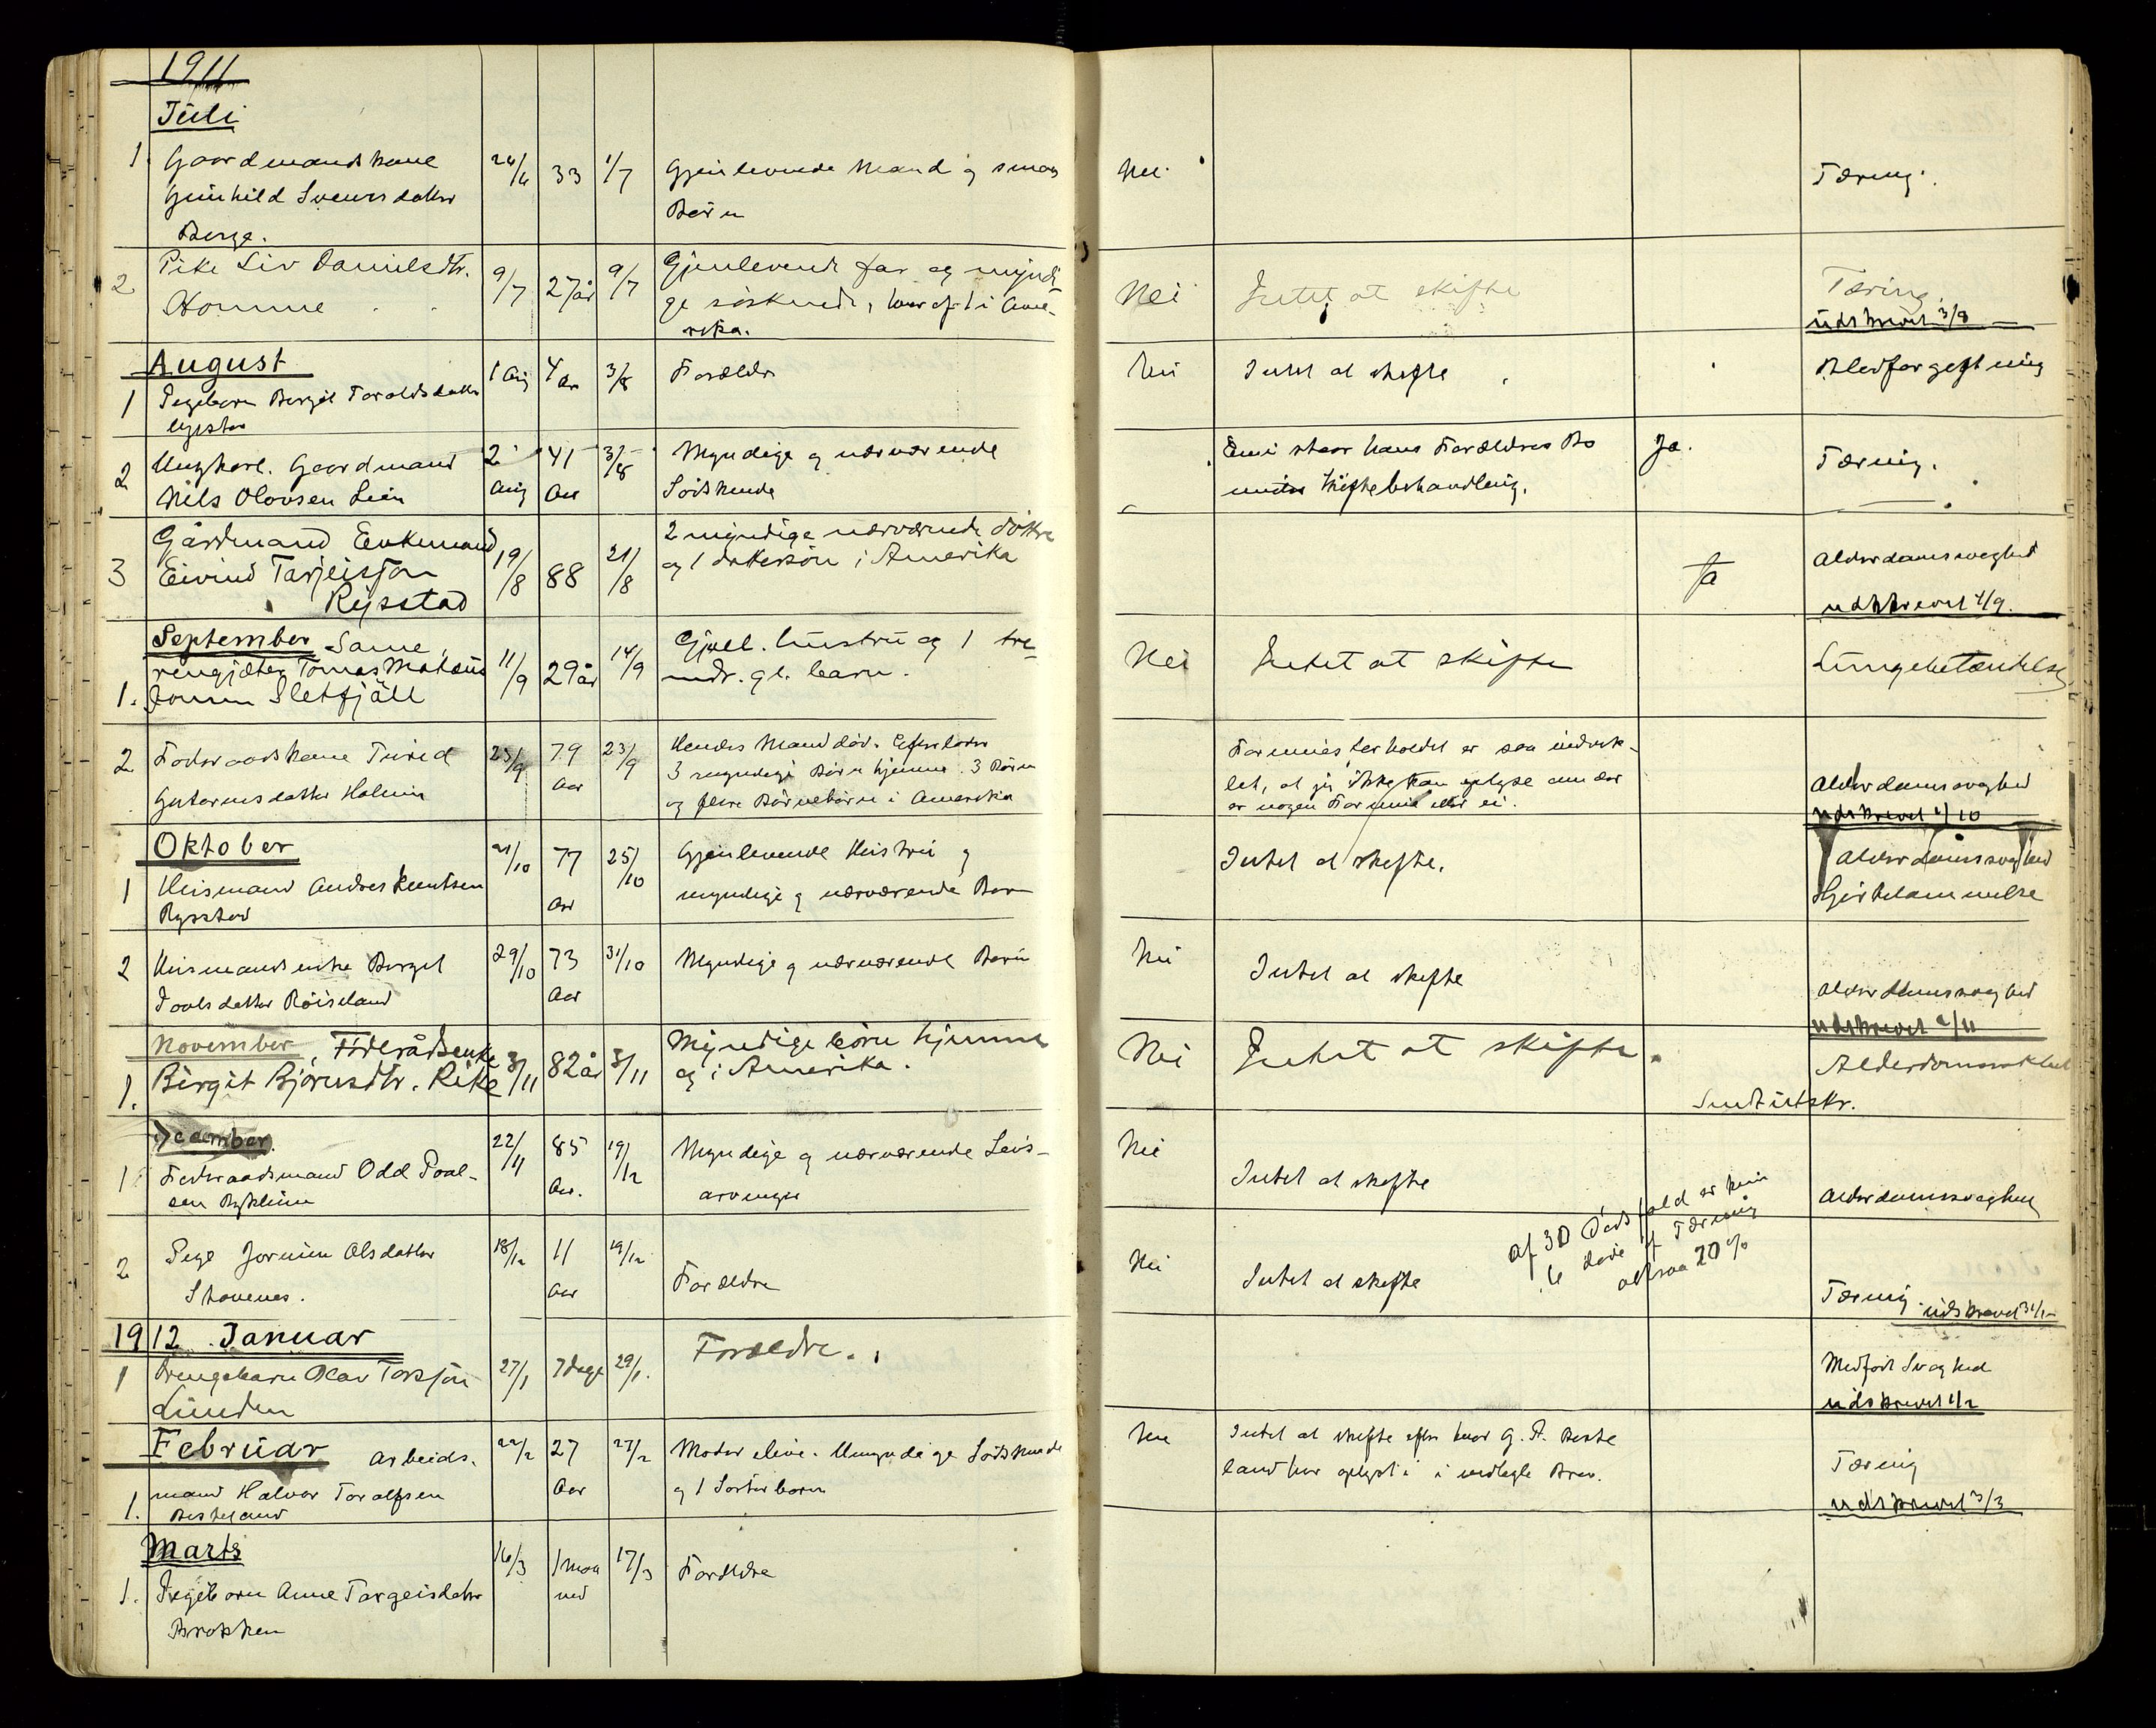 1911
Juli
1. Gaardmandskone 24/6 33 1/7 Gjenlevende Mand og smaa Nei. Tæring.
Gunhild Svensdatter Børn
Berge.
2 Pike Liv Danielsdtr. 9/7 27 år 9/7 Gjenlevende far og myndi- Nei Intet at skifte Tæring.
Homme ge søskende, hvoraf 1 i Ame- udskrevet 3/8
rika.
August
1 Pigebarn Bergit Taraldsdatter 1 Aug 4 Aar 3/8 Forældre Nei Intet at skifte Blodforgiftning
2 Ungkarl. Gaardmand 2 41 3/8 Myndige og nærværende Enni staar hans Forældres Bo Ja. Tæring.
Nils Olovsen Lien Aug Aar Søskende under Skiftebehandling.
3 Gårdmand Enkemand 19/8 88 21/8 2 myndige nærværende døttre Ja Alderdomssvaghed
Eivind Tarjeisson og 1 dattersøn i Amerika udskrevet 4/9.
Rysstad
September Same,
rengjæter Tomas Mataus 11/9 29 år 14/9 Gjenl. hustru og 1 tre- Nei Intet at skifte Lungebetændelse
1. Jonnn Sletfjäll mdr. gl. barn.
2 Foderaadskone Turid 23/9 79 23/9 Hendes Mand død. Efterlader Formuesforholdet er saa indvik- Alderdomssvaghed
Gutormsdatter Holmen Aar 3 myndige Børn hjemme. 3 Børn let, at jeg ikke kan oplyse om der udskrevet 2/10
og flere Børnebørn i Amerika er nogen Formue eller ei.
Oktober
1 Husmand Andres Knutsen 21/10 77 25/10 Gjenlevende Hustru og Intet at skifte. Alderdomssvaghed
Rysstad Aar myndige og nærværende Børn Hjertelammelse
2 Husmandsenke Bergit 29/10 73 31/10 Myndige og nærværende Børn Nei Intet at skifte Alderdomssvaghed
Paalsdatter Røiseland Aar udskrevet 2/11
November, Føderådsenke 3/11 82 år 3/11 Myndige børn hjemme Nei Intet at skifte. Alderdomssvakhet
1. Birgit Bjørnsdtr. Rike og i Amerika. Sendt utskr.
December.
1 Føderaadsmand Odd Paal- 22/11 85 19/12 Myndige og nærværende Livs- Nei Intet at skifte Alderdomssvaghed
sen Aar. arvinger
2 Pige Jorunn Olsdatter 18/12 11 19/12 Forældre Nei Intet at skifte Tæring udskrevet 31/12
Skovenes. Aar
af 30 Dødsfald er kun
6 døde af Tæring
altsaa 20%
1912 Januar
1 Drengebarn Olav Torsson 27/1 7 dage 29/1. Forældre. Medfødt Svaghed
Lunden udskrevet 1/2
Februar Arbeids-
1. mand Halvor Taralfsen 22/2 27 27/2 Moder elive. Umyndige Søskende Nei Intet at skifte efter hvad G. A. Beste Tæring
Besteland Aar og 1 Søsterbarn land har oplyst i vedlagte Brev. udskrevet 3/3
Marts
1. Pigebarn Anne Targeisdatter 16/3 1 Maa 17/3 Forældre
Brokken ned